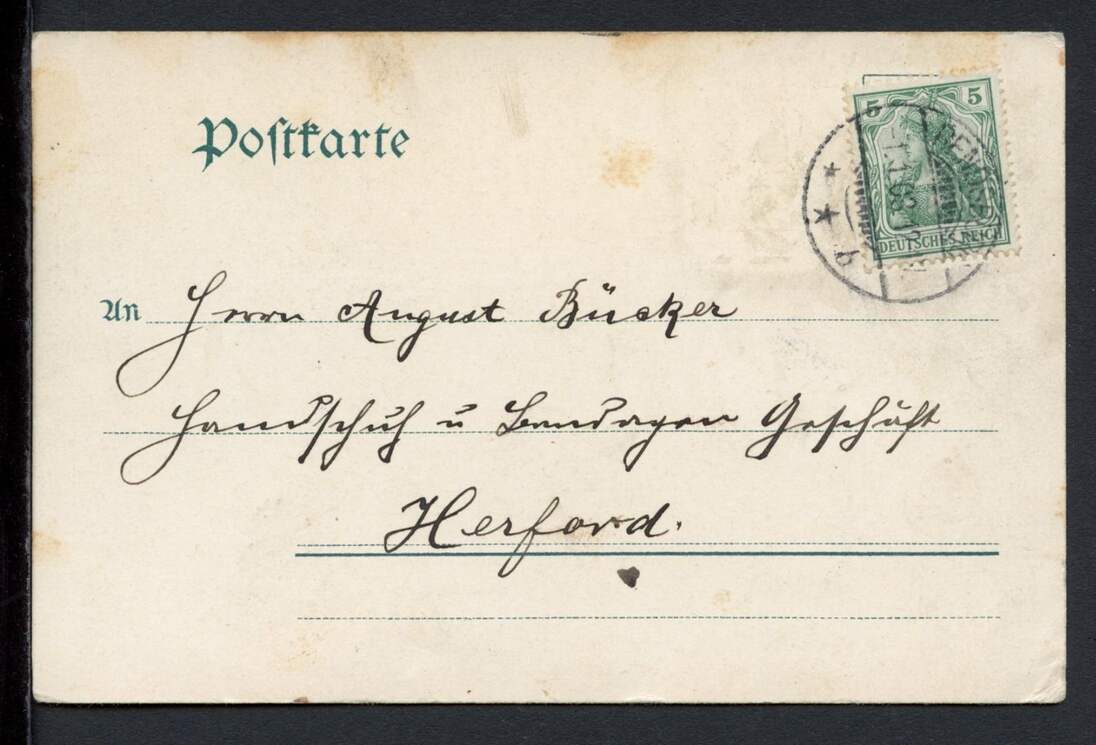 Postkarte
5 5
DEUTSCHES REICH
b
An Herrn August Bücker
Handschuh u Bandagen Geschäft
Herford.